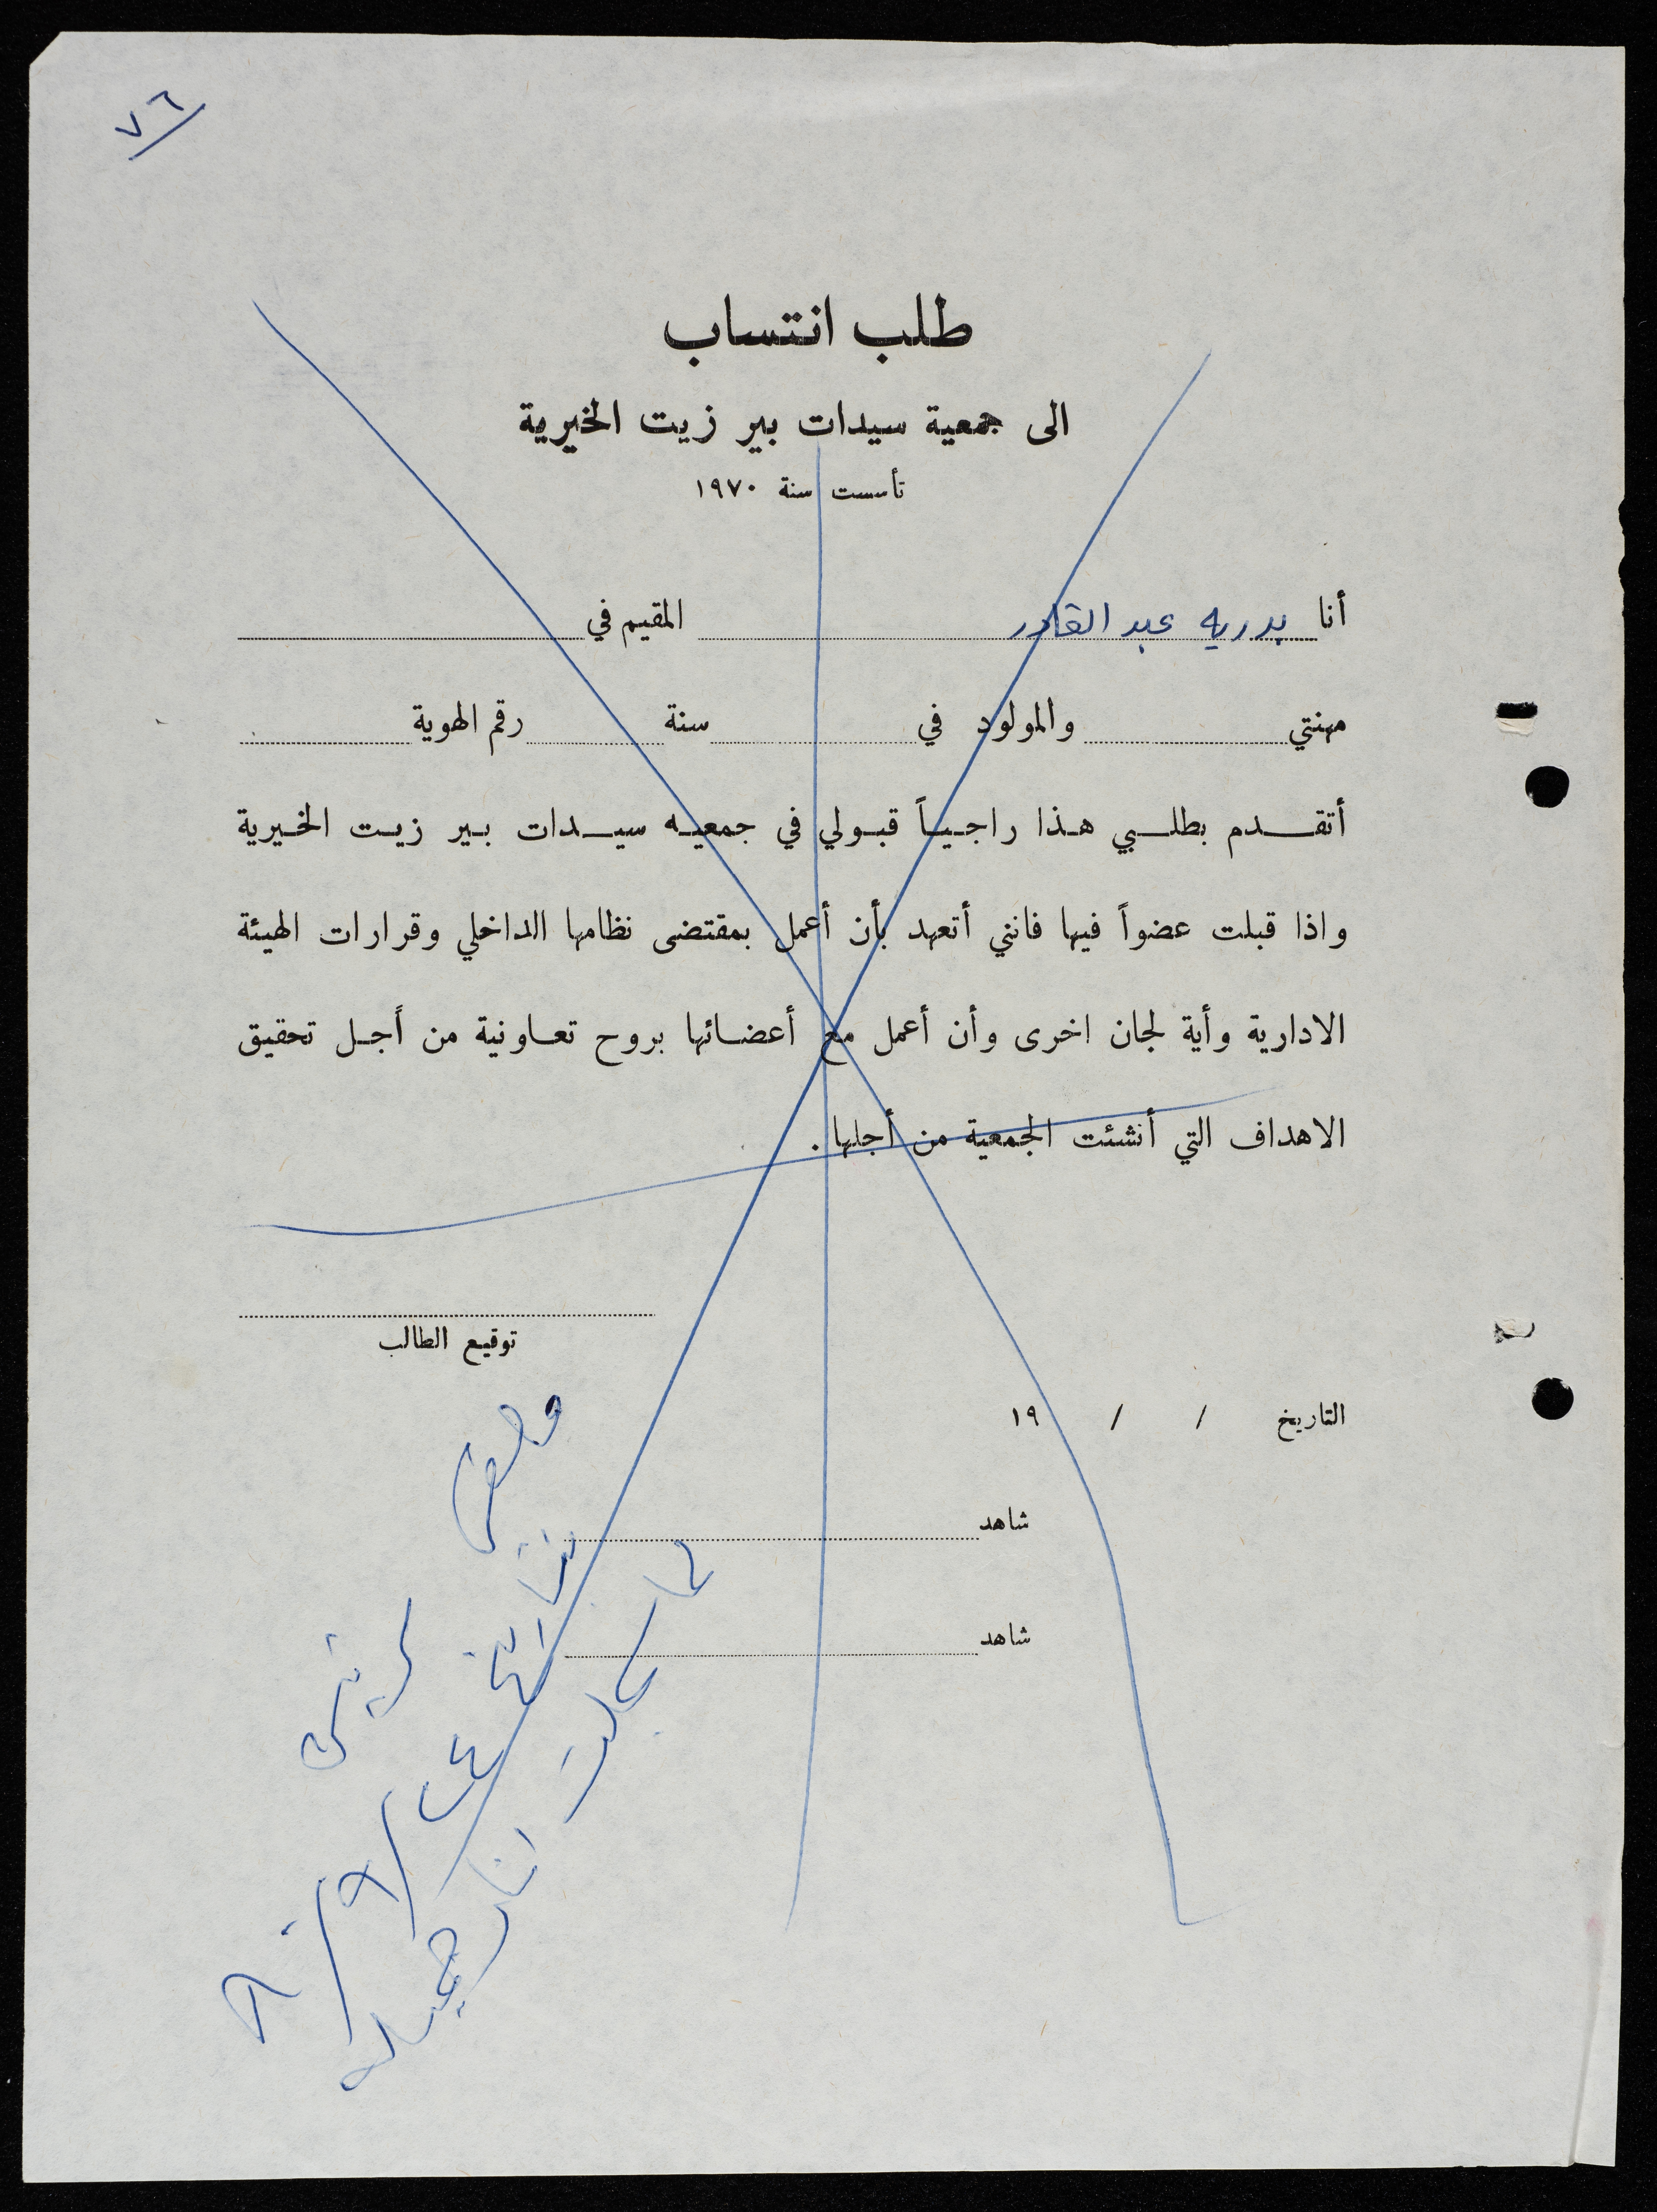 ٧٦
طلب انتساب
الى جمعية سيدات بير زيت الخيرية
تأسست سنة ١٩٧٠
أنا بدريه عبد القادر المقيم في
مهنتي والمولود في سنة رقم الهوية
أتقدم بطلبي هذا راجياً قبولي في جمعيه سيدات بير زيت الخيرية
واذا قبلت عضواً فيها فانني أتعهد بأن أعمل بمقتضى نظامها الداخلي وقرارات الهيئة
الادارية وأية لجان اخرى وأن أعمل مع أعضائها بروح تعاونية من أجل تحقيق
الاهداف التي أنشئت الجمعية من أجلها.
توقيع الطالب
التاريخ / / ١٩
شاهد
شاهد
بتاريخ ٢٤/٩/٨٠